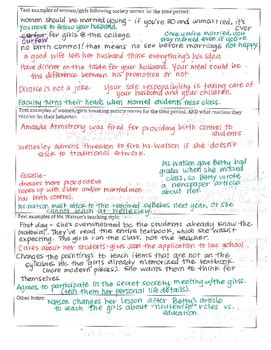 Text examples of women/girls following society norms for the time period:
Women should be married young - if you're 20 and unmarried, it's over
you need to follow your husband.
surfav for girls @ the college
Once you're married, you may even when not happy.
no birth control! that means no sex before marriage
a good wife lets her husband think everything's his idea
Have dinner on the table for your husband. Your meal could be the difference between his promotion or not
Divorce is not a joke. Your sole responsibility is taking care of your husband and your children.
Faculty turns their heads when married students miss class.
Text examples of women/girls breaking society norms for the time period AND what reaction they receive for their behavior:
Amanda Armstrong was fired for providing birth control to students
Wellesley admins threaten to fire Ms. Watson if she doesn't stick to traditional artwork.
Giselle-
dresses more provocative
hooks up with older and/or married men
has birth control
Ms. Watson gave Betty bad grades when she missed class, so Betty wrote a newspaper article about her.
Ms. Watson must stick to the required syllabus next year, or she cannot teach at Wellesley.
Text examples of Ms. Watson's teaching style:
First day - she's overwhelmed bc the students already know the material. They've read the entire textbook, which she wasn't expecting. The girls run the class, not the teacher.
Cares about her students - gives Joan the application to law school
Changes the paintings to teach items that are not on the syllabus bc the girls already memorized the textbook (more modern pieces). She wants them to think for themselves
Agrees to participate in the secret society meeting w/the girls. (tells them her personal life details).
Other Notes:
Watson changes her lesson after Betty's article to teach the girls about "housewife" roles vs. education.